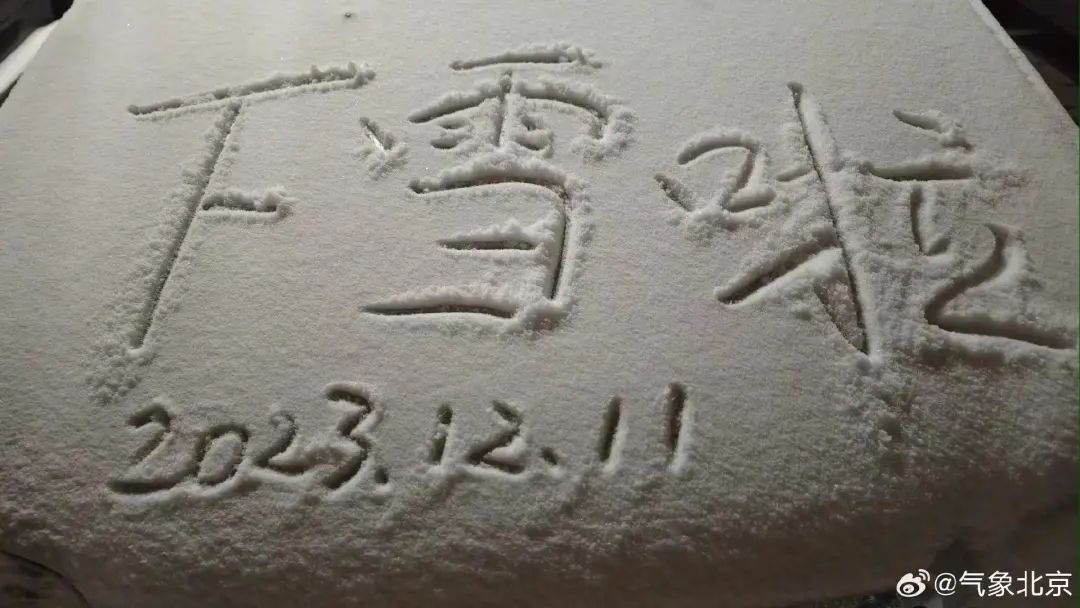 下雪啦
2023.12.11
@气象北京